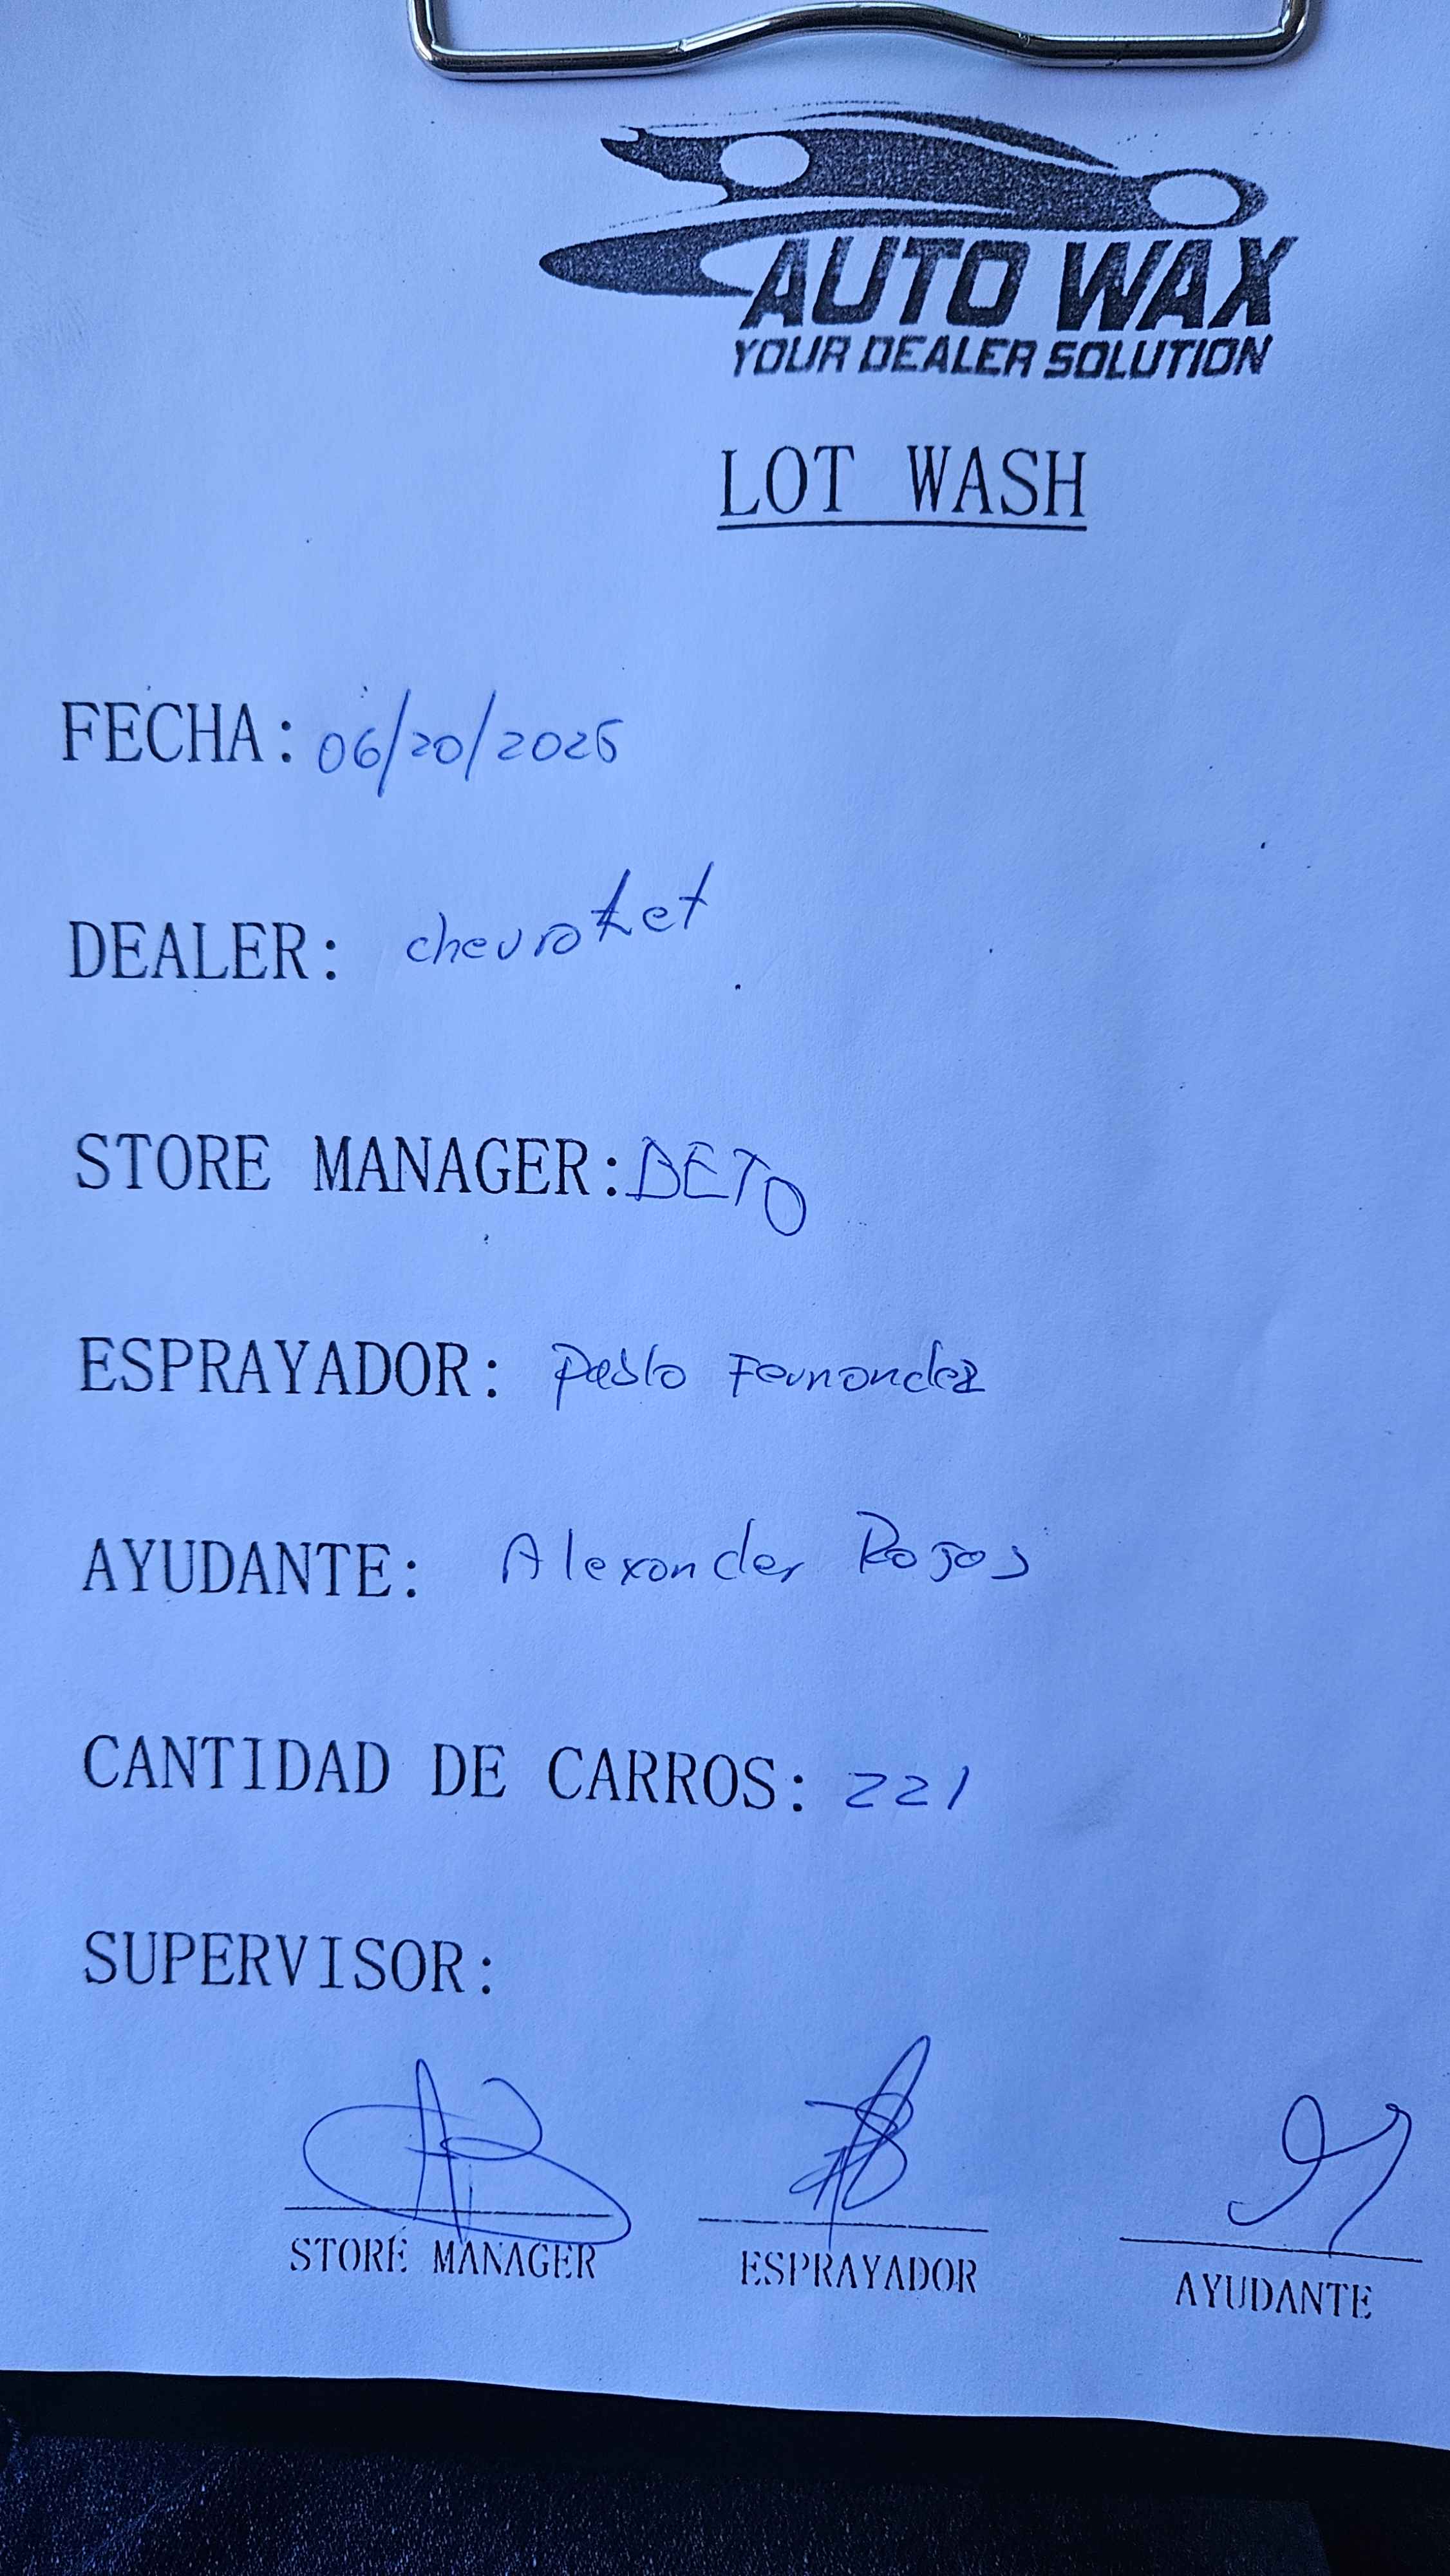 AUTO WAX
YOUR DEALER SOLUTION
LOT WASH
FECHA: 06/20/2025
DEALER: chevrolet
STORE MANAGER: BETO
ESPRAYADOR: Pablo Fernandez
AYUDANTE: Alexander Rojas
CANTIDAD DE CARROS: 221
SUPERVISOR:
STORE MANAGER ESPRAYADOR AYUDANTE